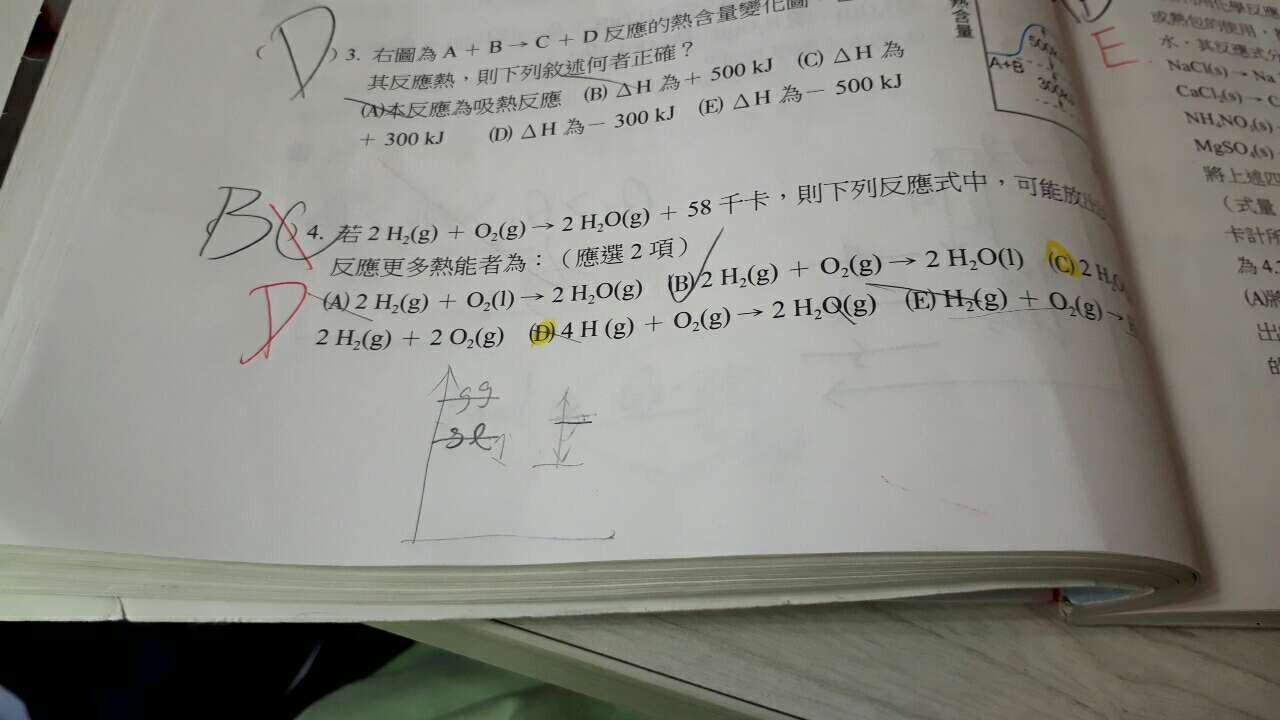 (D) 3. 右圖為 A + B → C + D 反應的熱含量變化圖,
其反應熱,則下列敘述何者正確?
(A)本反應為吸熱反應 (B) ΔH 為+ 500 kJ (C) ΔH 為
+ 300 kJ (D) ΔH 為- 300 kJ (E) ΔH 為- 500 kJ
熱含量
A+B
BC
D
4. 若 2 H₂(g) + O₂(g) → 2 H₂O(g) + 58 千卡,則下列反應式中,可能放出
反應更多熱能者為:(應選 2 項)
(A) 2 H₂(g) + O₂(l) → 2 H₂O(g) (B) 2 H₂(g) + O₂(g) → 2 H₂O(l) (C) 2 H₂O
2 H₂(g) + 2 O₂(g) (D) 4 H (g) + O₂(g) → 2 H₂O(g) (E) H₂(g) + O₂(g) →
gg
sl
E
或熱包的使用,
水,其反應式分
NaCl(s) → Na
CaCl₂(s) → C
NH₄NO₃(s)
MgSO₄(s) →
將上述四
(式量
卡計所
為 4.
(A)將
出
的